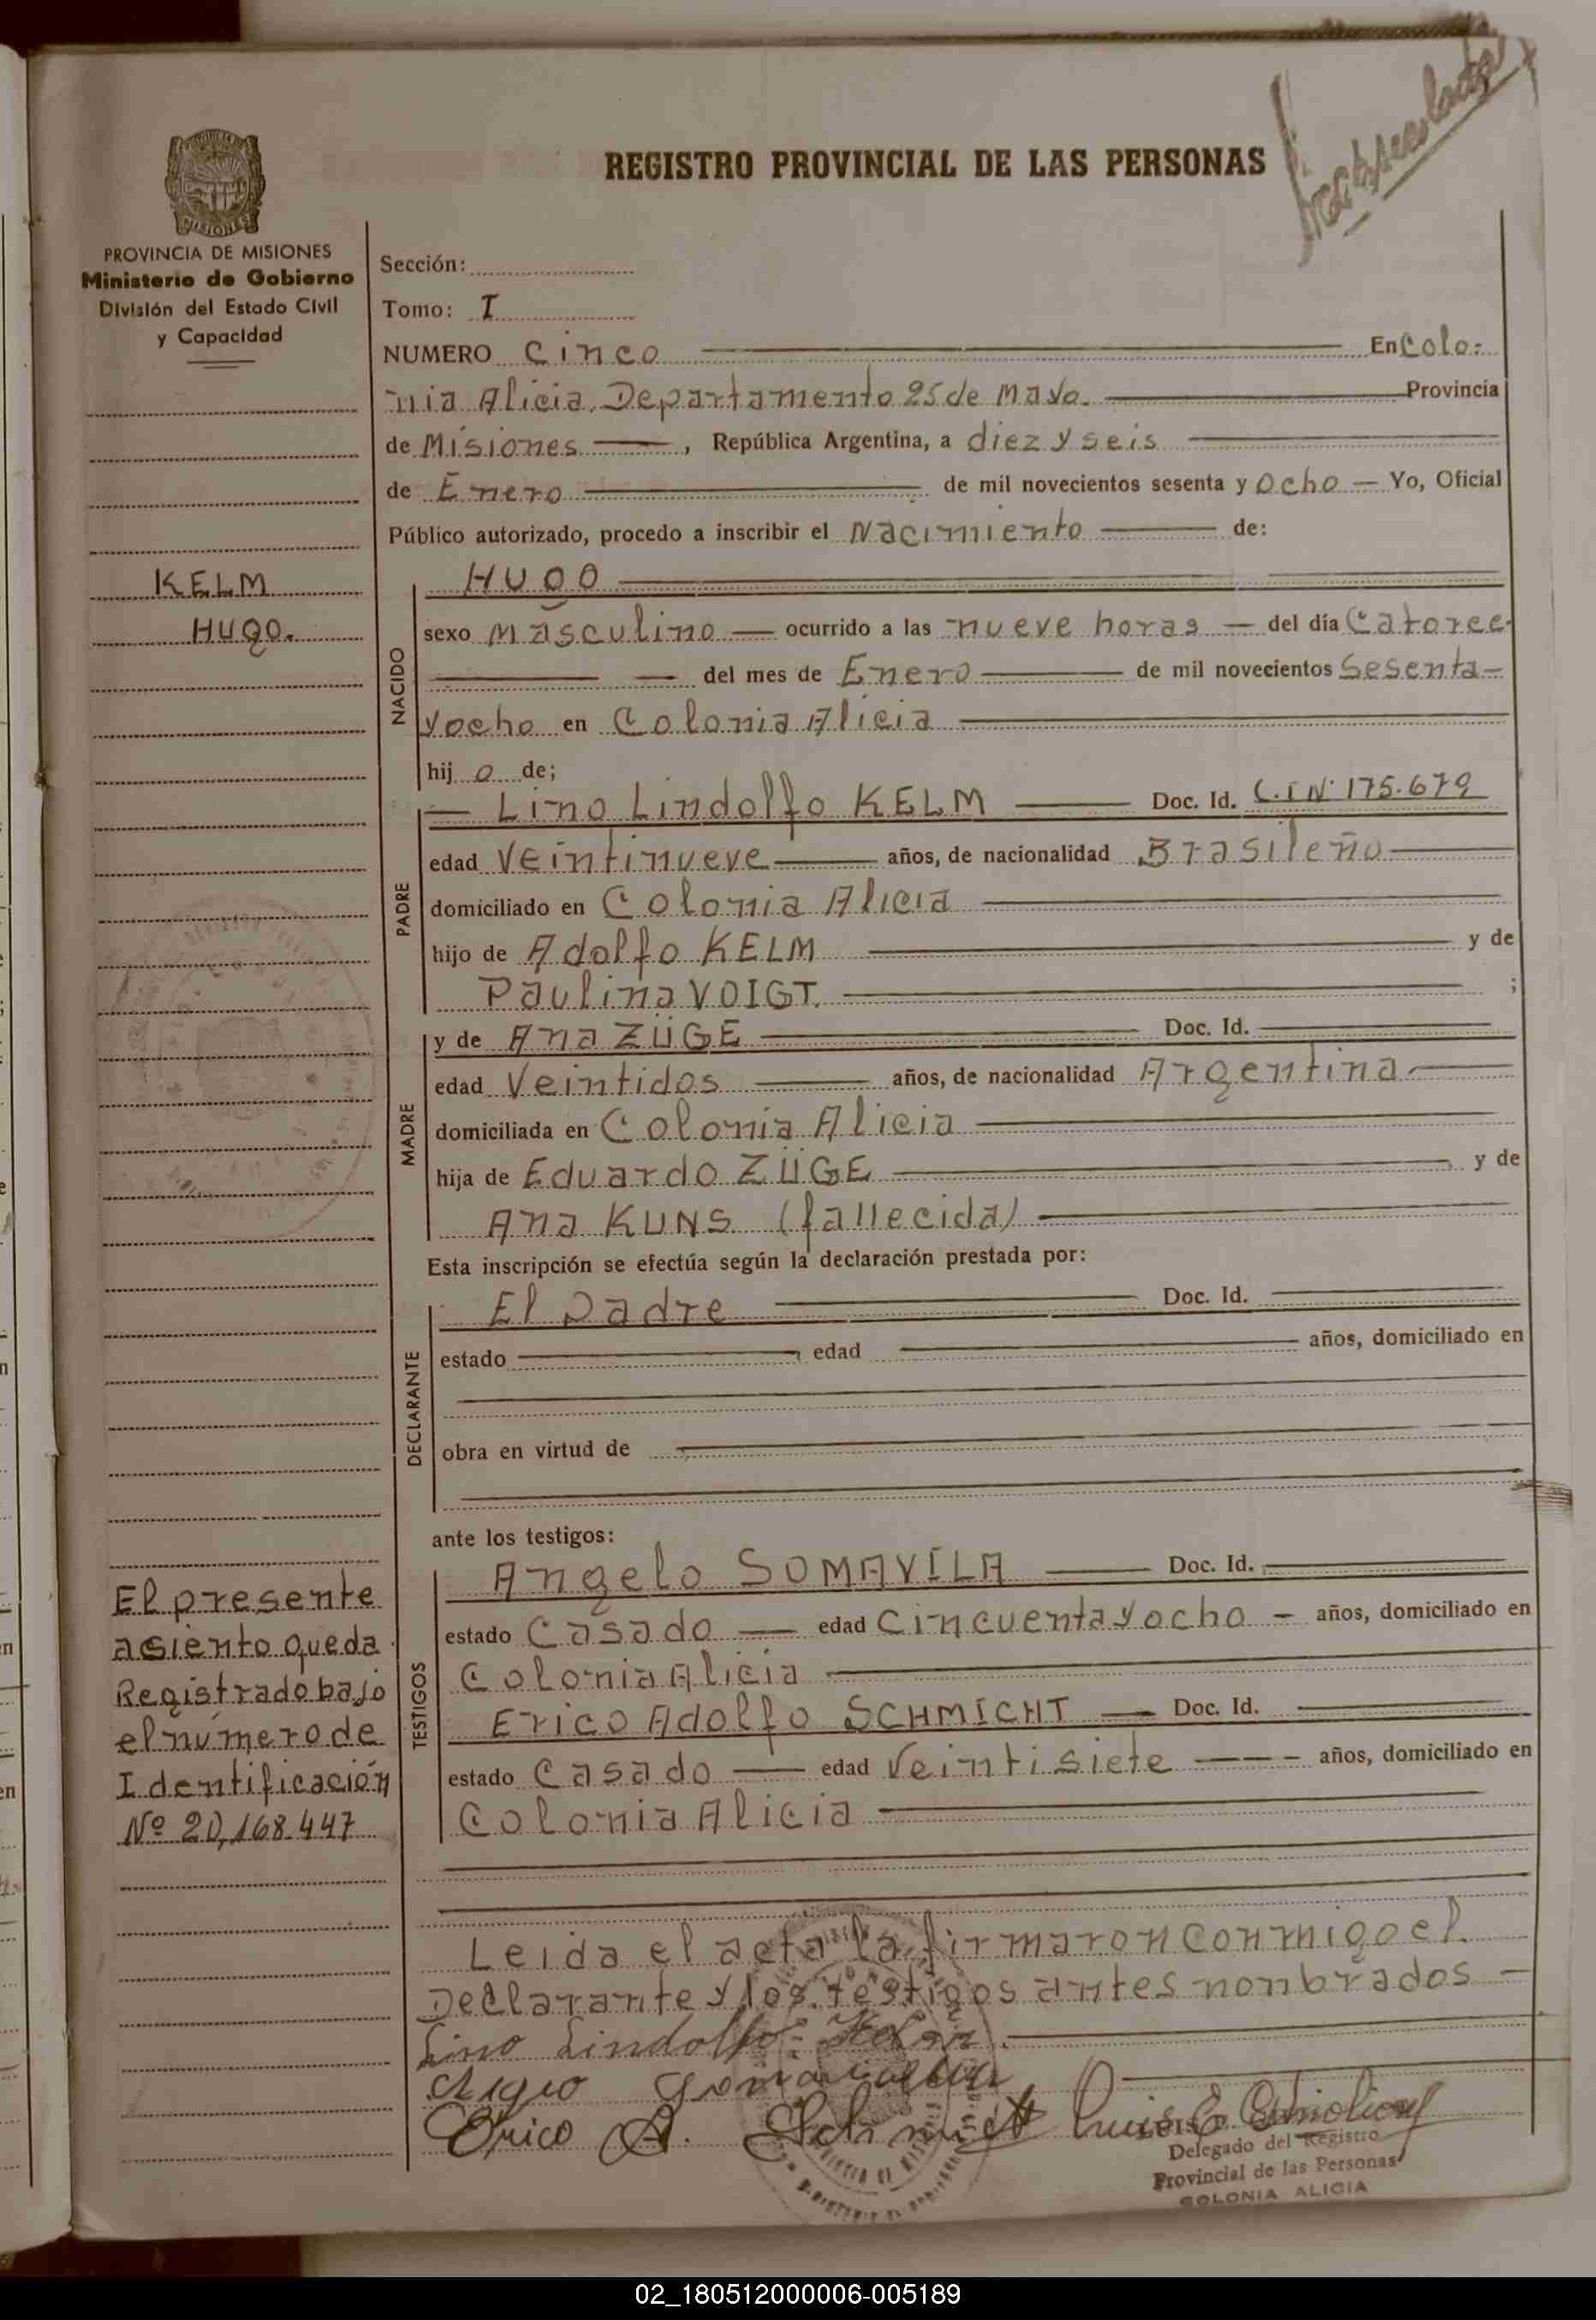 REGISTRO PROVINCIAL DE LAS PERSONAS
MISIONES
PROVINCIA DE MISIONES
Ministerio de Gobierno
División del Estado Civil
y Capacidad
KELM
HUGO.
El presente
asiento queda
Registrado bajo
el número de
Identificación
Nº 20,168.447
Sección:
Tomo: I
NUMERO Cinco En Colo-
nia Alicia, Departamento 25 de Mayo. Provincia
de Misiones, República Argentina, a diez y seis
de Enero de mil novecientos sesenta y ocho Yo, Oficial
Público autorizado, procedo a inscribir el Nacimiento de:
NACIDO
HUGO
sexo Masculino ocurrido a las nueve horas del día Catorce
del mes de Enero de mil novecientos Sesenta
y ocho en Colonia Alicia
hijo de;
PADRE
Lino Lindolfo KELM Doc. Id. C.I Nº 175.679
edad Veintinueve años, de nacionalidad Brasileño
domiciliado en Colonia Alicia
hijo de Adolfo KELM y de
Paulina VOIGT. ;
MADRE
y de Ana ZÜGE Doc. Id.
edad Veintidos años, de nacionalidad Argentina
domiciliada en Colonia Alicia
hija de Eduardo ZÜGE y de
Ana KUNS (fallecida)
Esta inscripción se efectúa según la declaración prestada por:
DECLARANTE
El Padre Doc. Id.
estado edad años, domiciliado en
obra en virtud de
ante los testigos:
TESTIGOS
Angelo SOMAVILA Doc. Id.
estado Casado edad Cincuenta y ocho años, domiciliado en
Colonia Alicia
Erico Adolfo SCHMICHT Doc. Id.
estado Casado edad Veintisiete años, domiciliado en
Colonia Alicia
Leida el acta la firmaron conmigo el
Declarante y los testigos antes nonbrados
Lino Lindolfo Kelm
Erico A. Schmicht
Delegado del Registro
Provincial de las Personas
COLONIA ALICIA
02_180512000006-005189